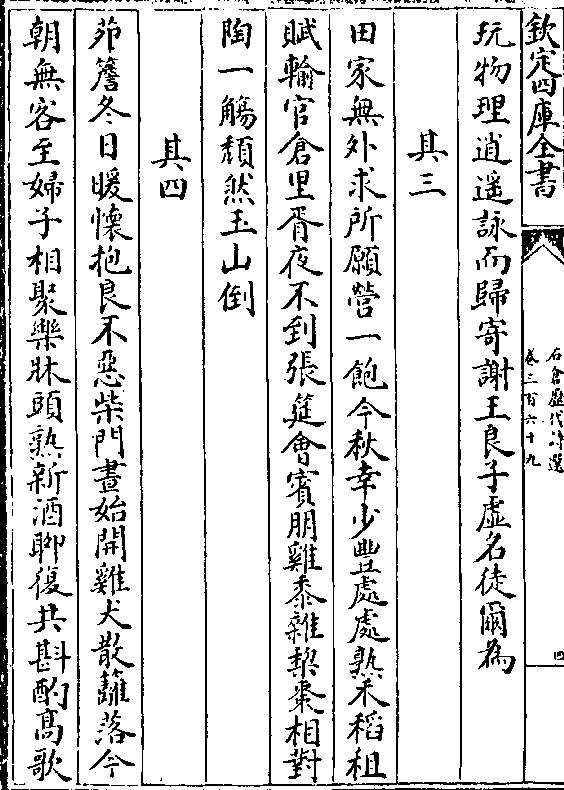 欽定四庫全書
石倉歷代詩選
卷三百六十九
四
玩物理逍遥詠而歸寄謝王良子虛名徒爾為
其三
田家無外求所願營一飽今秋幸少豐處處熟禾稻租
賦輸官倉里胥夜不到張筵會賓朋雞黍雜棃棗相對
陶一觴頽然玉山倒
其四
茆簷冬日暖懷抱良不惡柴門晝始開雞犬散籬落今
朝無客至婦子相聚樂牀頭熟新酒聊復共斟酌髙歌